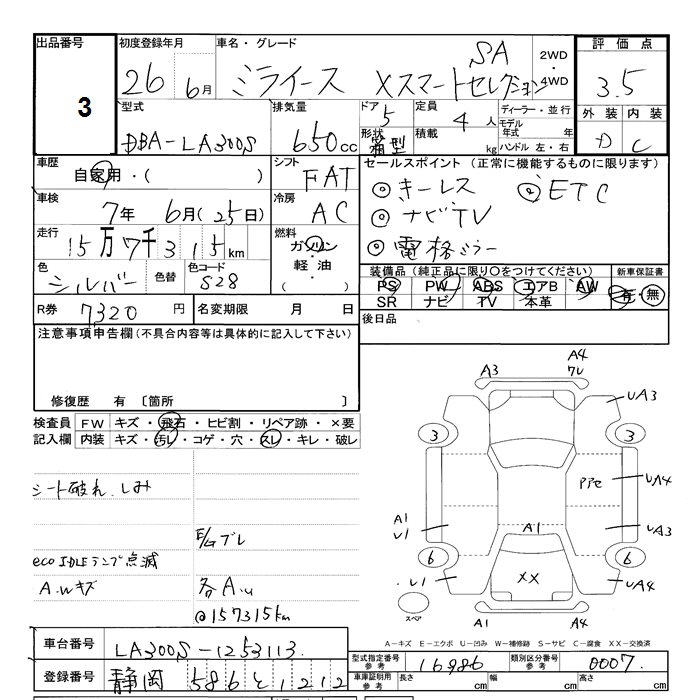 出品番号 初度登録年月 車名・グレード 評価点
3 26年 6月 ミライース XスマートセレクションSA 2WD・4WD 3.5
型式 排気量 ドア 5 定員 4人 ディーラー・並行 外装 内装
DBA-LA300S 650cc 形状 箱型 積載 kg モデル年式 年 D C
ハンドル 左・右
車歴 自家用・( ) シフト FAT セールスポイント (正常に機能するものに限ります)
車検 7年 6月(25日) 冷房 AC ◎キーレス ◎ETC
◎ナビTV
走行 15万7千315km 燃料 ガソリン・軽油・( ) ◎電格ミラー
色 シルバー 色替 色コード S28 装備品 (純正品に限り○をつけてください) 新車保証書
PS PW ABS エアB AW 有・無
SR ナビ TV 本革
R券 7320円 名変期限 月 日 後日品
注意事項申告欄(不具合内容等は具体的に記入して下さい)
修復歴 有 〔箇所 〕
検査員 FW キズ・飛石・ヒビ割・リペア跡・×要
記入欄 内装 キズ・汚レ・コゲ・穴・スレ・キレ・破レ
シート破れ.しみ
E/Gブレ
eco IDLEランプ点滅
A.Wキズ 各A.u
@157315km
A3 A4
UA3
3 3
UA4
A1 A1 UA3
U1
6 6
.U1 XX UA4
スペア A1 A4
A-キズ E-エクボ U-凹み W-補修跡 S-サビ C-腐食 XX-交換済
車台番号 LA300S-1253113 型式指定番号 参考 16986 類別区分番号 参考 0007
登録番号 静岡 586 と 1212 車庫証明用 参考 長さ cm 幅 cm 高さ cm